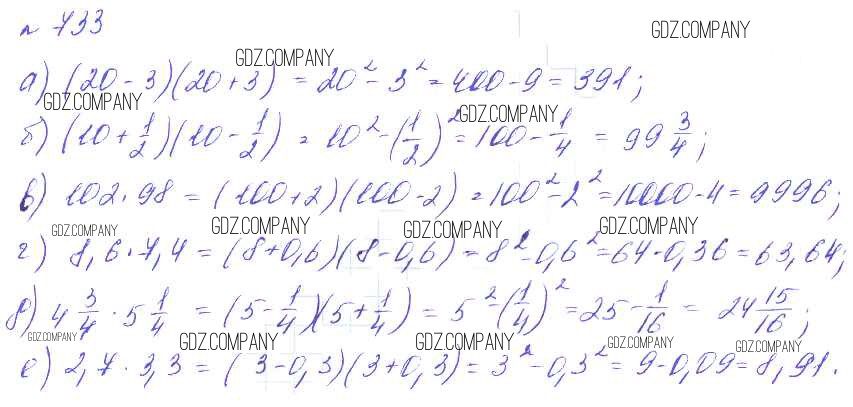 № 733
GDZ.COMPANY
GDZ.COMPANY
а) (20 - 3)(20 + 3) = 20² - 3² = 400 - 9 = 391;
GDZ.COMPANY
GDZ.COMPANY
б) (10 + 1/2)(10 - 1/2) = 10² - (1/2)² = 100 - 1/4 = 99 3/4;
в) 102 · 98 = (100 + 2)(100 - 2) = 100² - 2² = 10000 - 4 = 9996;
GDZ.COMPANY GDZ.COMPANY GDZ.COMPANY GDZ.COMPANY
г) 8,6 · 7,4 = (8 + 0,6)(8 - 0,6) = 8² - 0,6² = 64 - 0,36 = 63,64;
д) 4 3/4 · 5 1/4 = (5 - 1/4)(5 + 1/4) = 5² - (1/4)² = 25 - 1/16 = 24 15/16;
GDZ.COMPANY GDZ.COMPANY GDZ.COMPANY GDZ.COMPANY GDZ.COMPANY
е) 2,7 · 3,3 = (3 - 0,3)(3 + 0,3) = 3² - 0,3² = 9 - 0,09 = 8,91.